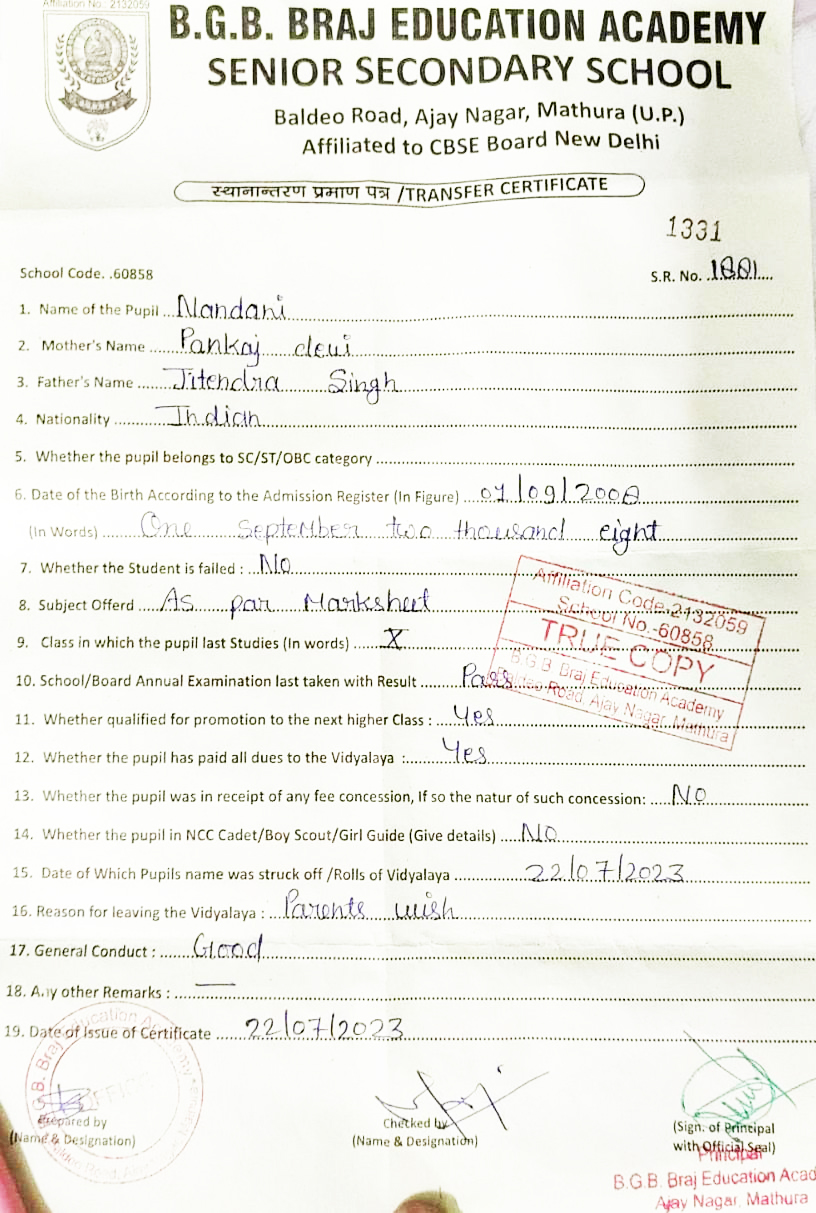 Affiliation No : 2132059
B.G.B. BRAJ EDUCATION ACADEMY
SENIOR SECONDARY SCHOOL
Baldeo Road, Ajay Nagar, Mathura (U.P.)
Affiliated to CBSE Board New Delhi
स्थानान्तरण प्रमाण पत्र /TRANSFER CERTIFICATE
1331
School Code. .60858
S.R. No. 1881
1. Name of the Pupil Nandani
2. Mother's Name Pankaj devi
3. Father's Name Jitendra Singh
4. Nationality Indian
5. Whether the pupil belongs to SC/ST/OBC category
6. Date of the Birth According to the Admission Register (In Figure) 01/09/2008
(In Words) One September two thousand eight
7. Whether the Student is failed : No
8. Subject Offerd As par Marksheet
9. Class in which the pupil last Studies (In words) X
10. School/Board Annual Examination last taken with Result Pass
11. Whether qualified for promotion to the next higher Class : Yes
12. Whether the pupil has paid all dues to the Vidyalaya : Yes
13. Whether the pupil was in receipt of any fee concession, If so the natur of such concession: NO
14. Whether the pupil in NCC Cadet/Boy Scout/Girl Guide (Give details) NO
15. Date of Which Pupils name was struck off /Rolls of Vidyalaya 22/07/2023
16. Reason for leaving the Vidyalaya : Parents wish
17. General Conduct : Good
18. Any other Remarks : —
19. Date of Issue of Certificate 22/07/2023
Affiliation Code-2132059
School No.-60858
TRUE COPY
B.G.B. Braj Education Academy
Baldeo Road, Ajay Nagar, Mathura
G.B. Braj Education Academy
OFFICE
Baldeo Road,
Prepared by
(Name & Designation)
Checked by
(Name & Designation)
(Sign. of Principal
with Official Seal)
Principal
B.G.B. Braj Education Acad
Ajay Nagar, Mathura